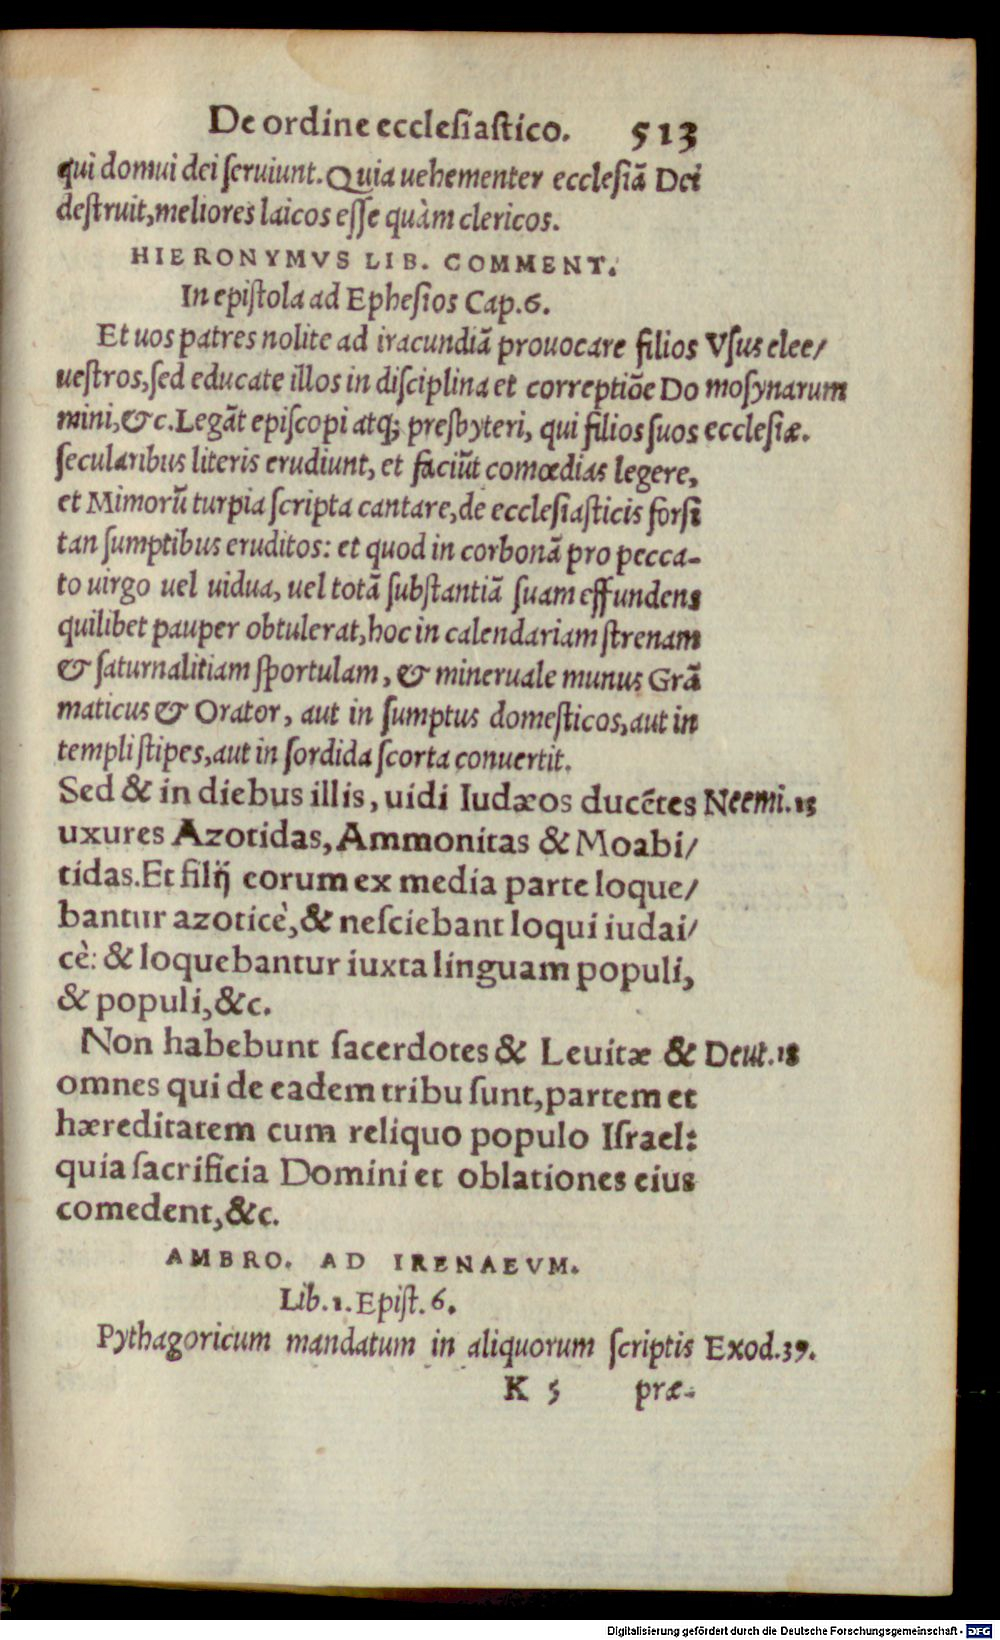 De ordine ecclesiastico. 513
qui domui dei ſeruiunt. Quia uehementer eccleſiã Dei
deſtruit, meliores laicos eſſe quàm clericos.
HIERONYMVS LIB. COMMENT.
In epiſtola ad Epheſios Cap. 6.
Et uos patres nolite ad iracundiã prouocare filios Vſus elee/
ueſtros, ſed educate illos in diſciplina et correptiõe Do moſynarum
mini, &c. Legãt epiſcopi atq; preſbyteri, qui filios ſuos eccleſiæ.
ſecularibus literis erudiunt, et faciũt comœdias legere,
et Mimorũ turpia ſcripta cantare, de eccleſiaſticis forſi
tan ſumptibus eruditos: et quod in corbonã pro pecca-
to uirgo uel uidua, uel totã ſubſtantiã ſuam effundens
quilibet pauper obtulerat, hoc in calendariam ſtrenam
& ſaturnalitiam ſportulam, & mineruale munus Grã
maticus & Orator, aut in ſumptus domeſticos, aut in
templi ſtipes, aut in ſordida ſcorta conuertit.
Sed & in diebus illis, uidi Iudæos ducẽtes Neemi. 13
uxures Azotidas, Ammonitas & Moabi/
tidas. Et filij eorum ex media parte loque/
bantur azoticè, & neſciebant loqui iudai/
cè: & loquebantur iuxta linguam populi,
& populi, &c.
Non habebunt ſacerdotes & Leuitæ & Deut. 18
omnes qui de eadem tribu ſunt, partem et
hæreditatem cum reliquo populo Iſrael:
quia ſacrificia Domini et oblationes eius
comedent, &c.
AMBRO. AD IRENAEVM.
Lib. 1. Epiſt. 6.
Pythagoricum mandatum in aliquorum ſcriptis Exod. 39.
K 5 præ-
Digitalisierung gefördert durch die Deutsche Forschungsgemeinschaft - DFG